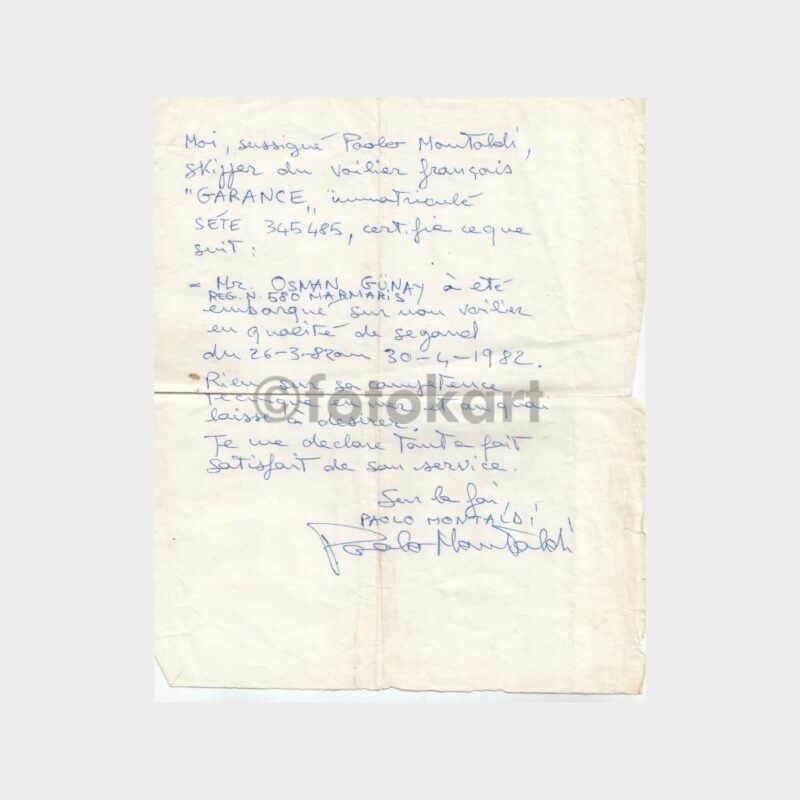 Moi, sussigné Paolo Montaldi,
skipper du voilier français
"GARANCE" immatriculé
SÉTE 345485, certifie ce que
suit:
- Mr. OSMAN GÜNAY à eté
REG. N. 580 MARMARIS
embarqué sur mon voilier
en qualité de segond
du 26-3-82 au 30-4-1982.
Rien sur sa competence
tecnique en mer et au quai
laisse à desirer.
Je me declare tout a fait
satisfait de son service.
Sur la foi,
PAOLO MONTALDI
Paolo Montaldi
©fotokart